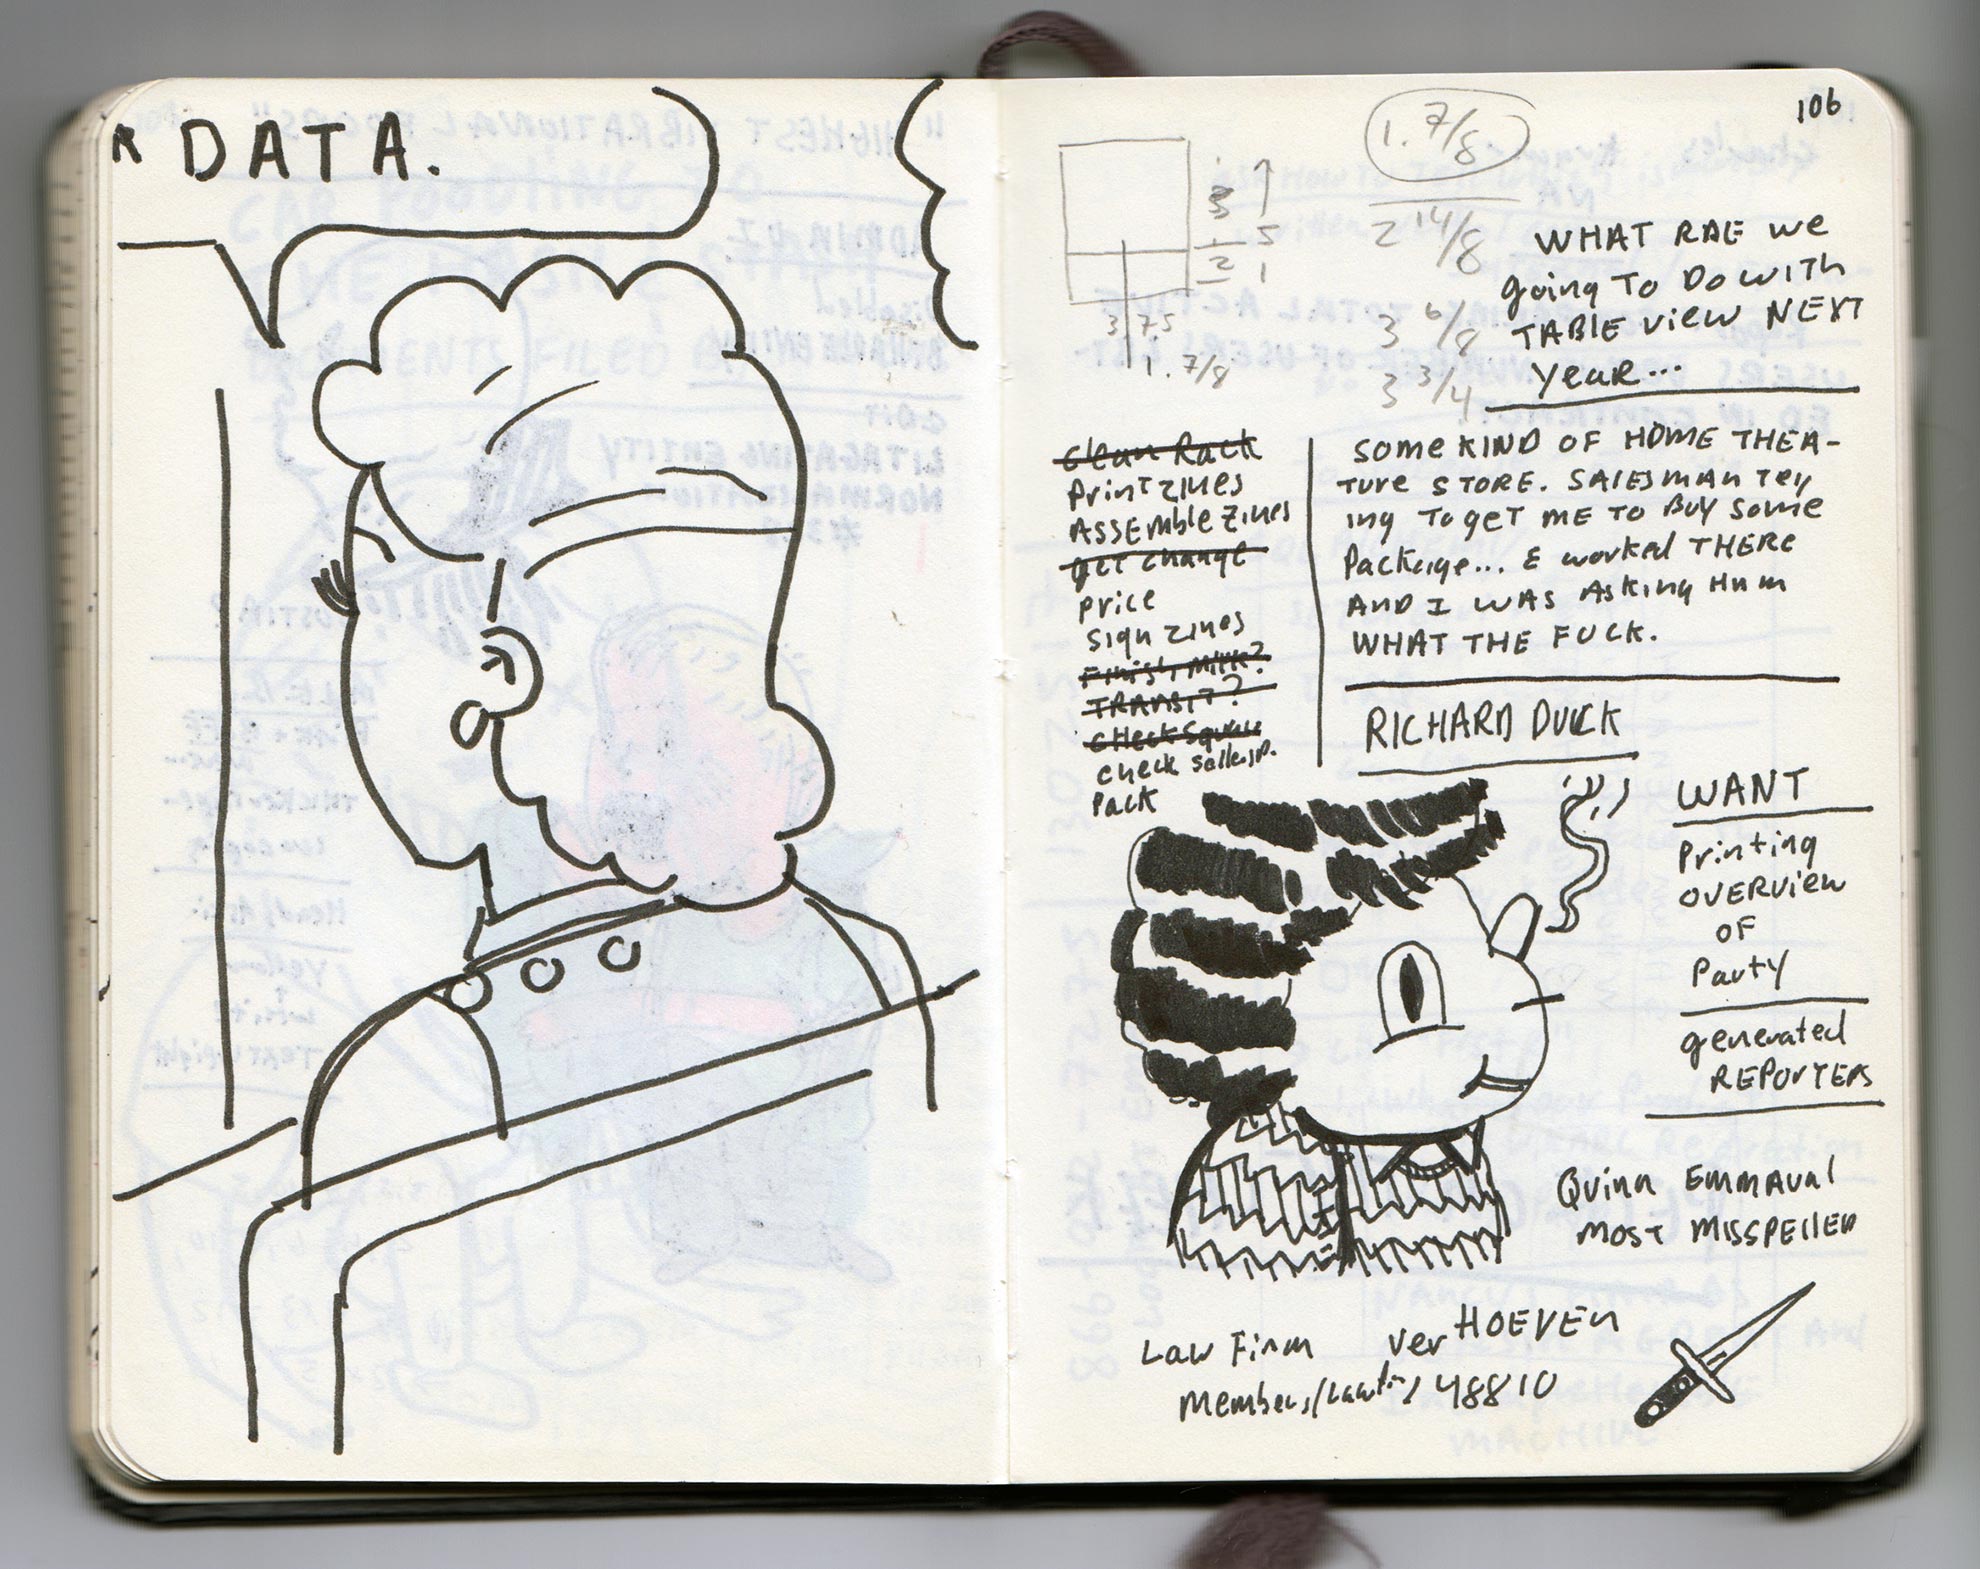 R DATA.
106
1. 7/8
2 14/8
3 6/8
3 3/4
3
5
2
1
3 75
1. 7/8
WHAT RAE we
going To Do WITH
TABLE view NEXT
year...
clean Rack
Print zines
ASSEMble Zines
get change
price
Sign zines
Finish Milk?
TRANSIT?
check Square
check
Pack
SOME KIND OF HOME THEA-
TURE STORE. SALESMAN Try
ing To get ME TO Buy some
Package... E worked THERE
AND I WAS Asking Him
WHAT THE FUCK.
RICHARD DUCK
WANT
Printing
OVERVIEW
OF
Party
generated
REPORTERS
Quinn Emmaual
MOST MISSPELLED
Law Firm
ver HOEVEN
Members/Lawfirms/48810